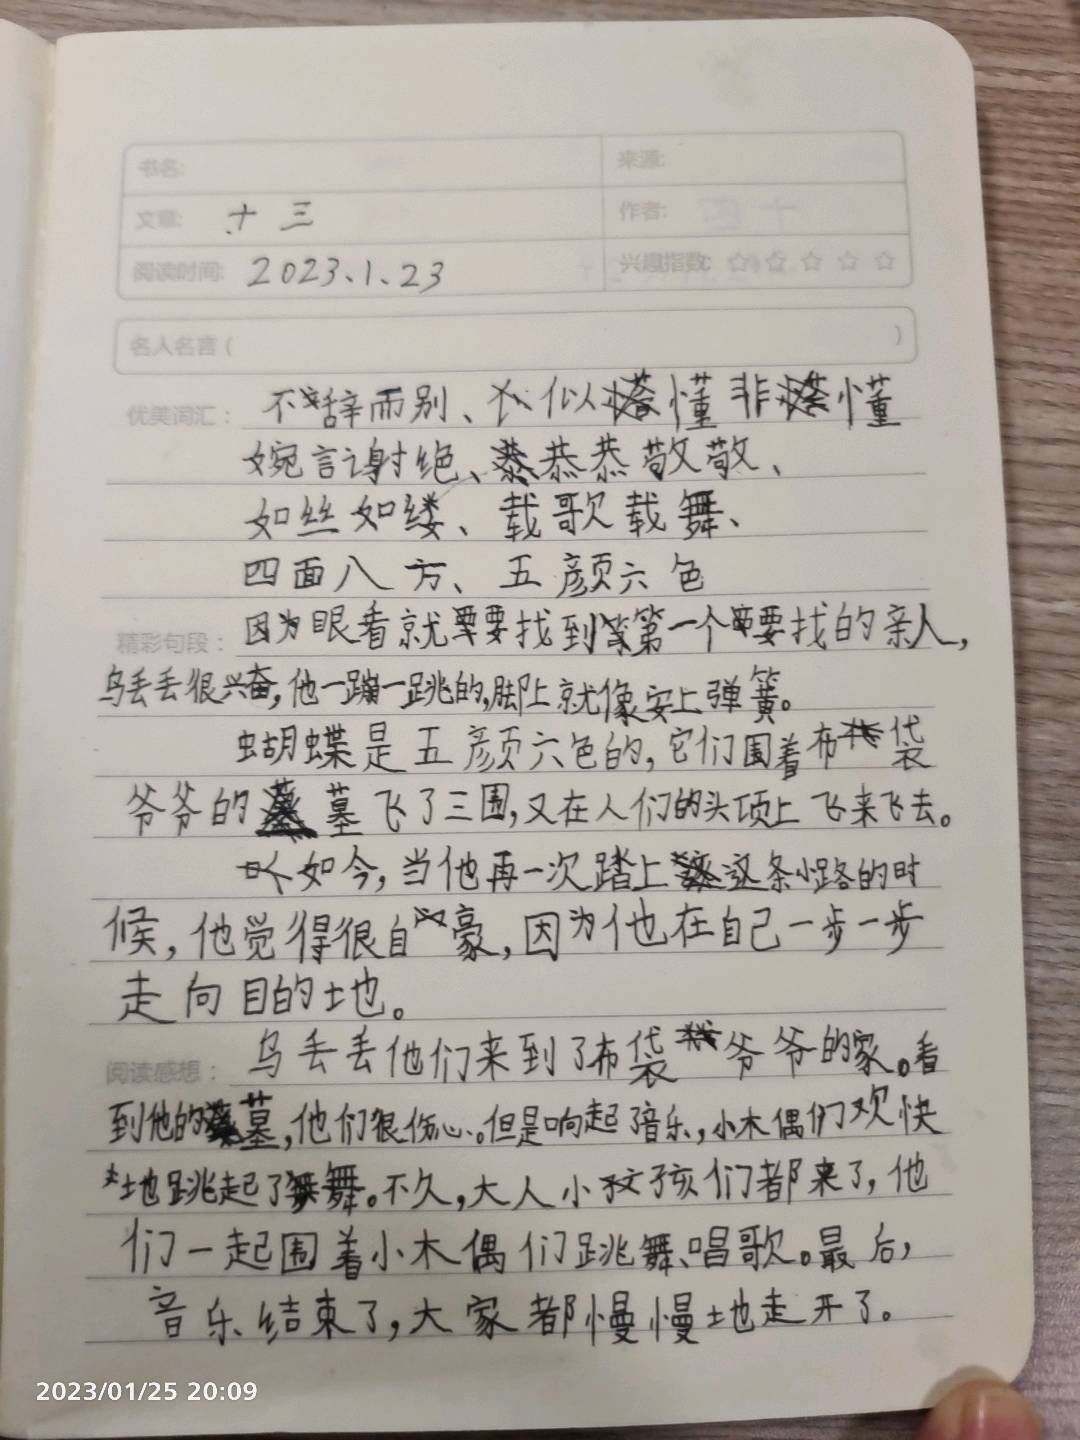 书名:
来源:
文章: 十三
作者:
阅读时间: 2023.1.23
兴趣指数: ☆☆☆☆☆
名人名言 ( )
优美词汇: 不辞而别、似懂非懂
婉言谢绝、恭恭敬敬、
如丝如缕、载歌载舞、
四面八方、五颜六色
精彩句段: 因为眼看就要找到第一个要找的亲人,
乌丢丢很兴奋,他一蹦一跳的,脚上就像安上弹簧。
蝴蝶是五颜六色的,它们围着布袋
爷爷的墓飞了三圈,又在人们的头顶上飞来飞去。
如今,当他再一次踏上这条小路的时
候,他觉得很自豪,因为他在自己一步一步
走向目的地。
阅读感想: 乌丢丢他们来到了布袋爷爷的家。看
到他的墓,他们很伤心。但是响起了音乐,小木偶们欢快
地跳起了舞。不久,大人小孩们都来了,他
们一起围着小木偶们跳舞、唱歌。最后,
音乐结束了,大家都慢慢地走开了。
2023/01/25 20:09